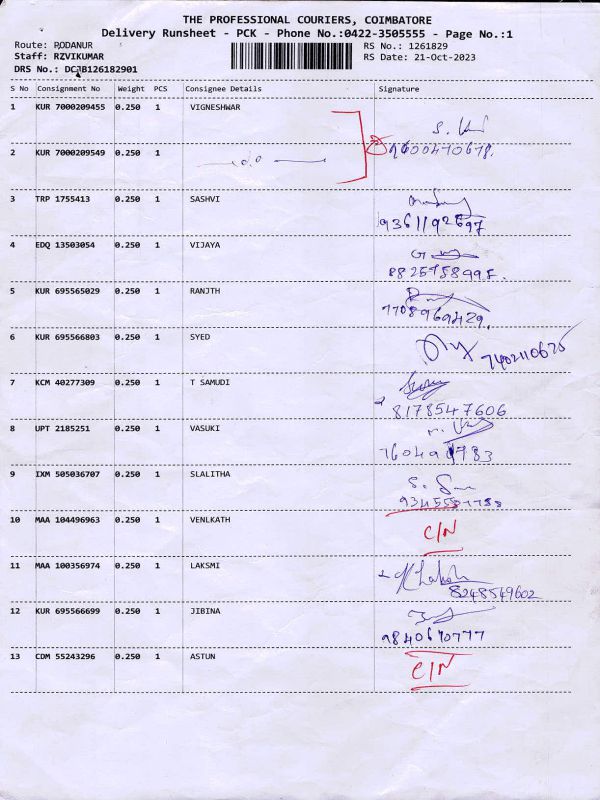 THE PROFESSIONAL COURIERS, COIMBATORE
Delivery Runsheet - PCK - Phone No.:0422-3505555 - Page No.:1
Route: PODANUR RS No.: 1261829
Staff: RZVIKUMAR RS Date: 21-Oct-2023
DRS No.: DCJB126182901
S No Consignment No Weight PCS Consignee Details Signature
1 KUR 7000209455 0.250 1 VIGNESHWAR
2 KUR 7000209549 0.250 1 9600470678.
3 TRP 1755413 0.250 1 SASHVI
9361192697
4 EDQ 13503054 0.250 1 VIJAYA
5 KUR 695565029 0.250 1 RANJTH
7708969429.
6 KUR 695566803 0.250 1 SYED
7402110675
7 KCM 40277309 0.250 1 T SAMUDI
8178547606
8 UPT 2185251 0.250 1 VASUKI
9 IXM 505036707 0.250 1 SLALITHA
10 MAA 104496963 0.250 1 VENLKATH
C/N
11 MAA 100356974 0.250 1 LAKSMI
8248549602
12 KUR 695566699 0.250 1 JIBINA
9840670777
13 CDM 55243296 0.250 1 ASTUN
C/N